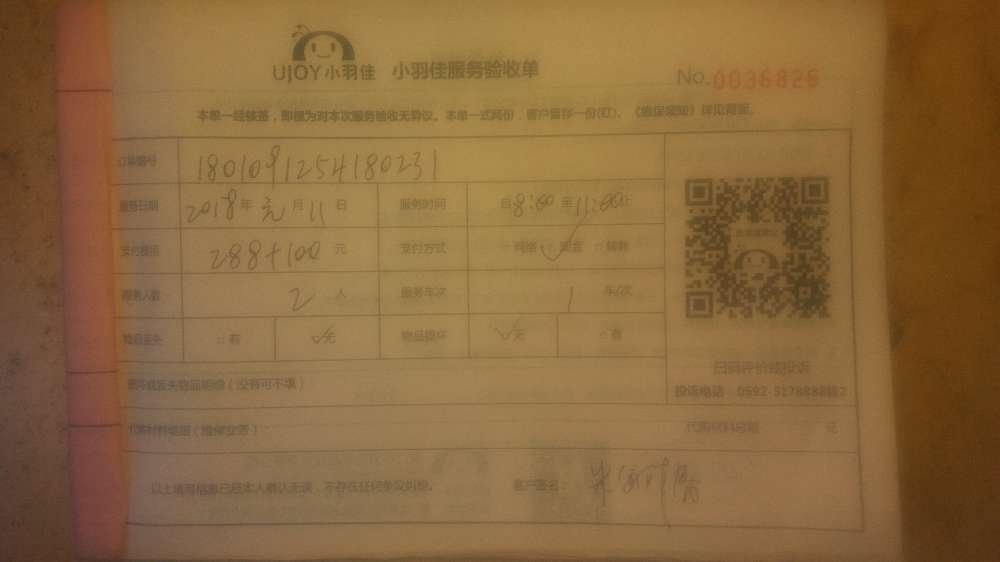 UJOY小羽佳 小羽佳服务验收单 No.0036826
本单一经核签，即视为对本次服务验收无异议。本单一式两份，客户留存一份(红)。《维保须知》详见背面。
订单编号 1801091254180231
服务日期 2018年元月11日 服务时间 自8:00至11:00止
支付费用 288+100元 支付方式 □网络 ✓现金 □转账
服务人数 2人 服务车次 1车/次
物品丢失 □有 ✓无 物品损坏 ✓无 □有
扫码评价或投诉
损坏或丢失物品明细（没有可不填） 投诉电话：0592-5178888转2
代购材料明细（维修业务） 代购材料总额 元
以上填写信息已经本人确认无误，不存在任何争议纠纷。 客户签名：